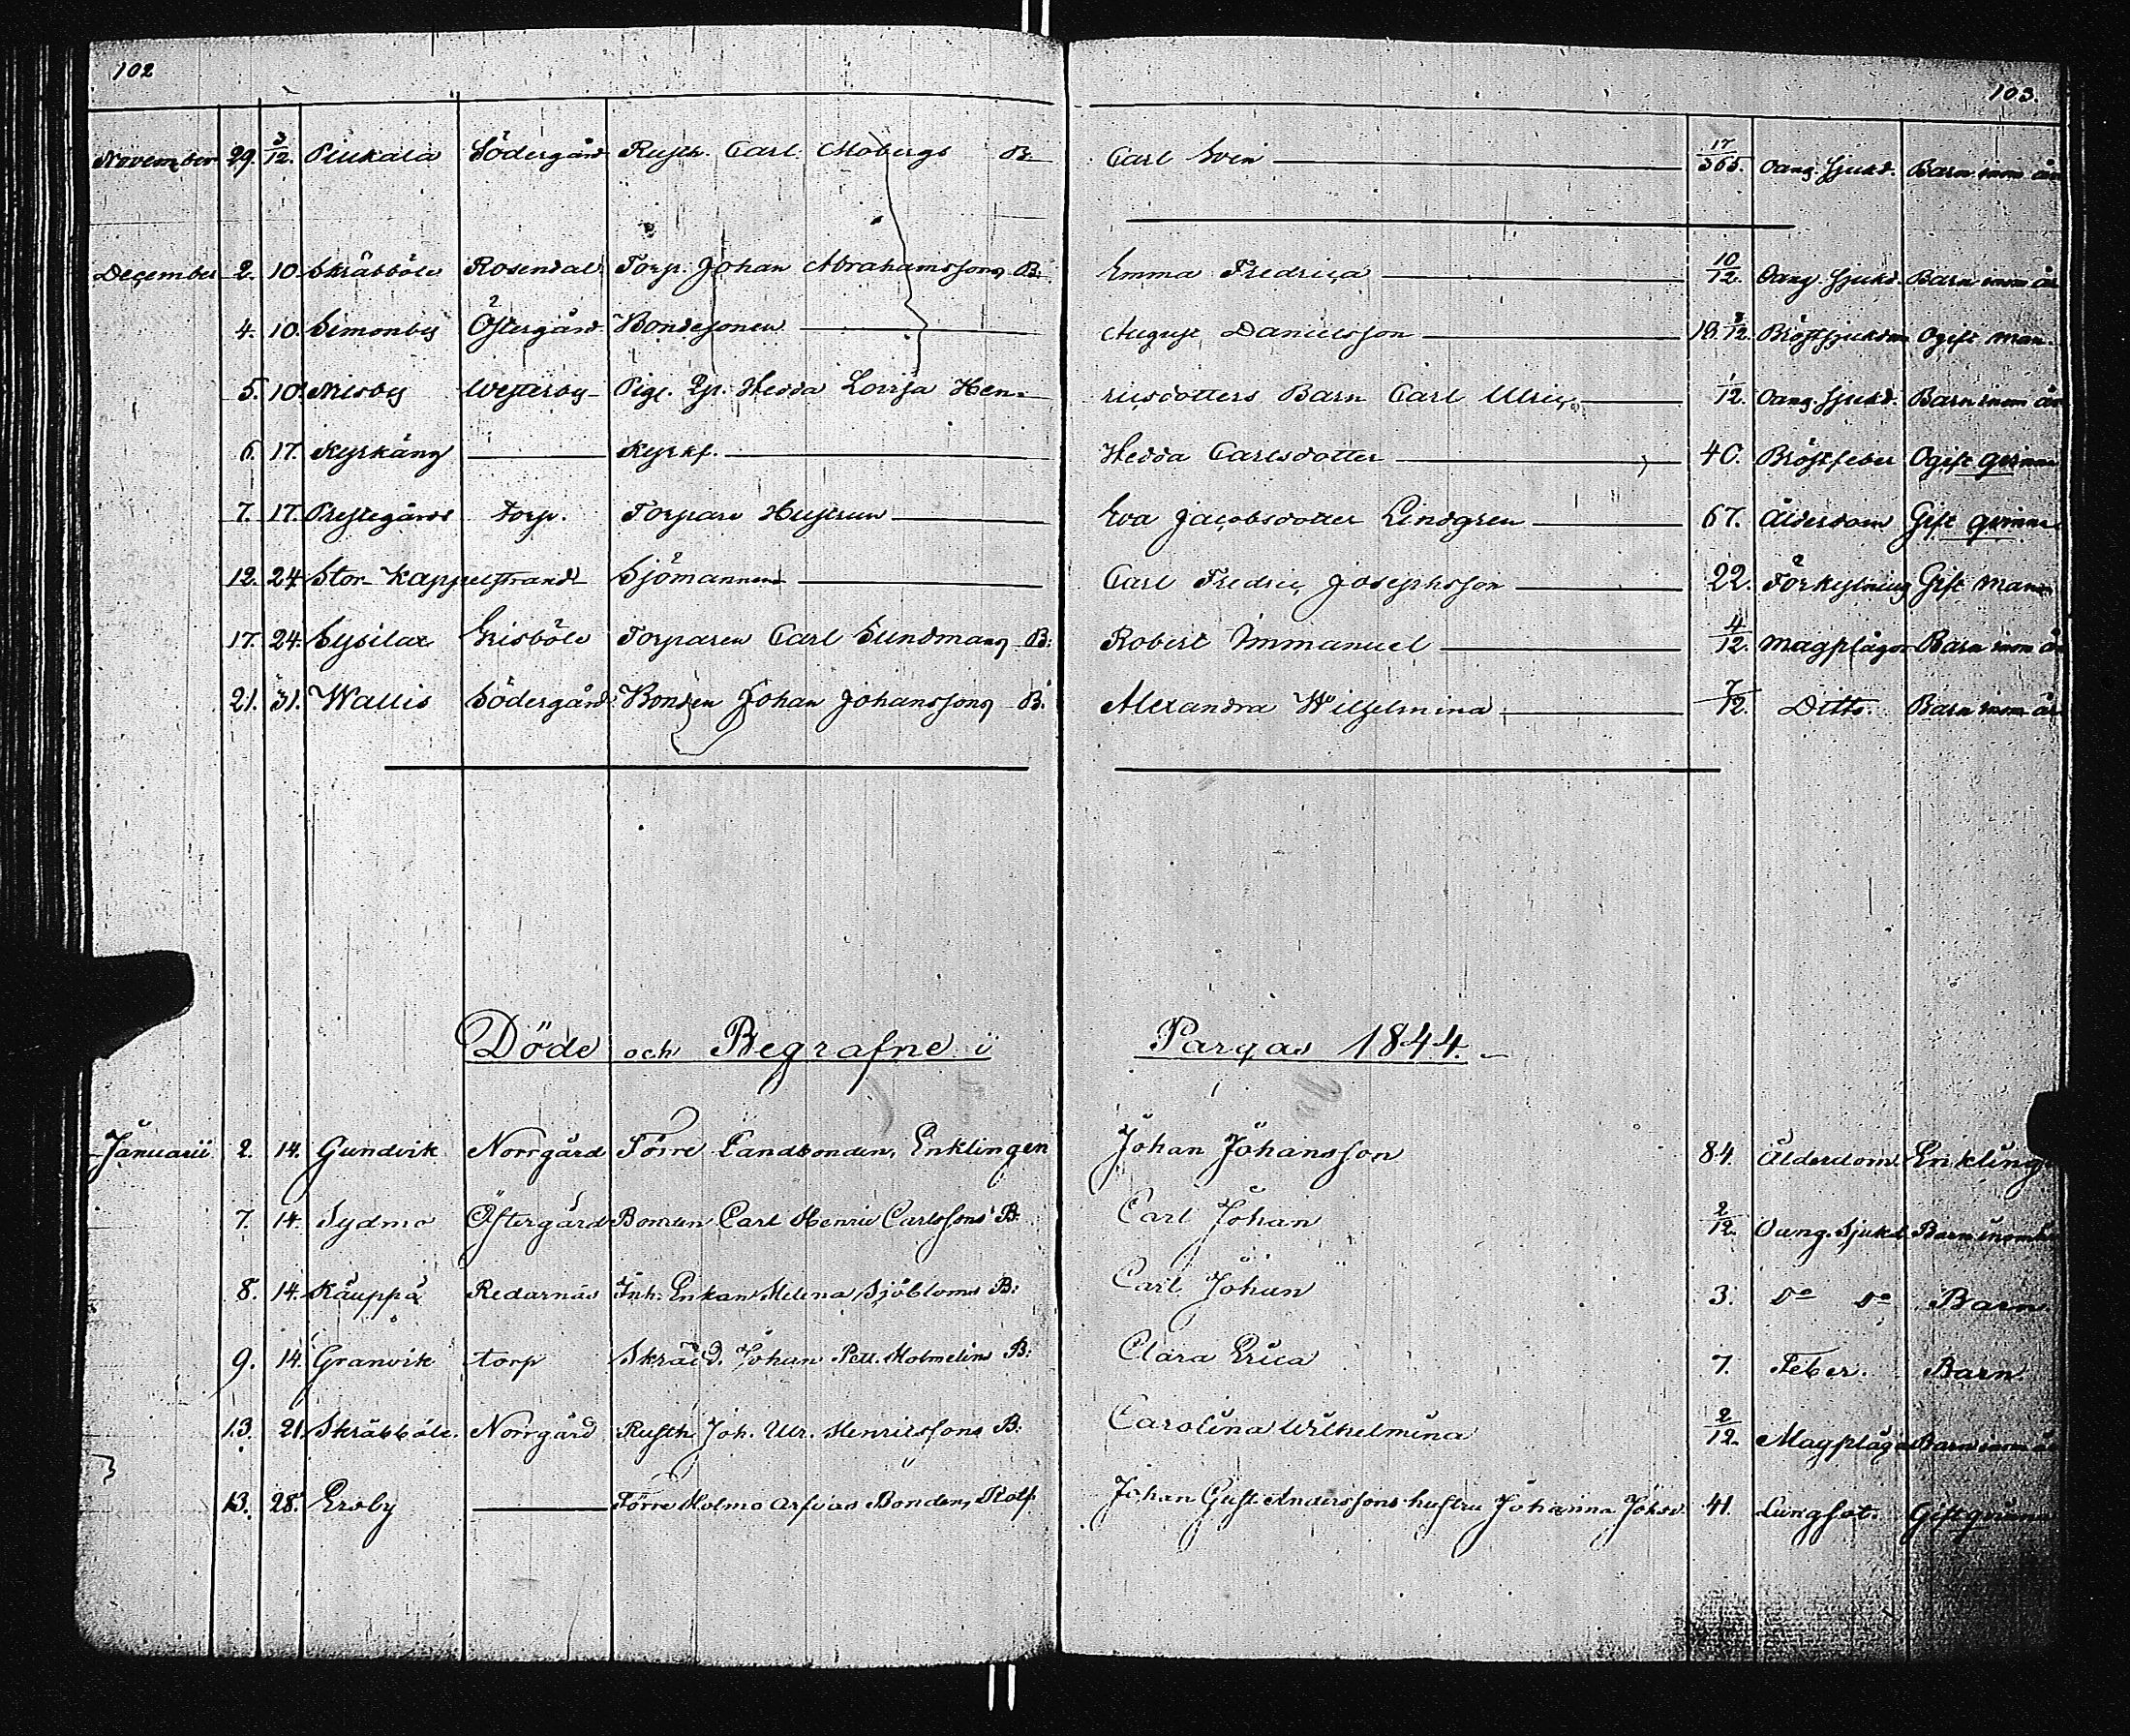 102
103.
November 29. 3/12. Piukala Södergård Rusth. Carl Mobergs B. Carl Sven 17/365. Oang. Sjukd. Barn inom år
December 2. 10. Skräbböle Rosendal Torp. Johan Abrahamssons B: Emma Fredrica 10/12. Oang. Sjukd. Barn inom år
4. 10. Simonby Östergård Bondesonen August Danielsson 18 3/12. Bröstsjukdom Ogift man.
5. 10. Nisby Westerby Pig. Lovisa Hedda Hen- ricsdotters Barn Carl Ulric 1/12. Oang. Sjukd. Barn inom år
6. 17. Kyrkäng Kyrkf. Hedda Carlsdotter 40. Bröstfeber Ogift qvinna
7. 17. Prestegårds Torp. Torpare Hustrun Eva Jacobsdotter Lindgren 67. Ålderdom Gift qvinna
12. 24 Stor Kappelstrand Sjömannen Carl Fredric Josephsson 22. Förkylning Gift man
17. 24. Sysilax Grisböle Torparen Carl Sundmans B: Robert Immanuel 4/12. Magplågor Barn inom år
21. 31. Wallis Södergård Bonden Johan Johanssons B. Alexandra Wilhelmina 7/12. Ditto. Barn inom år
Döde och Begrafne i Pargas 1844.
Januarii 2. 14. Gundvik Norrgård Förre Landbonden, Enklingen Johan Johansson 84. Ålderdom Enkling
7. 14. Sydmo Östergård Bonden Carl Henric Carlssons B. Carl Johan 2/12. Oang. Sjukd. Barn inom år
8. 14. Kauppa Redarnäs Inh. Enkan Helena Sjöbloms B: Carl Johan 3. Do Do Barn
9. 14. Granvik torp Skräd. Johan Pett. Holmelins B: Clara Erica 7. Feber. Barn
13. 21. Skräbböle. Norrgård Rusth. Joh. Ulr. Henricssons B: Carolina Wilhelmina 2/12. Magplågor Barn inom år
13. 28. Ersby Förre Holmo Bonden, Rotf. Johan Gust. Anderssons hustru Johanna Johsd. 41. Lungsot. Gift qvinna